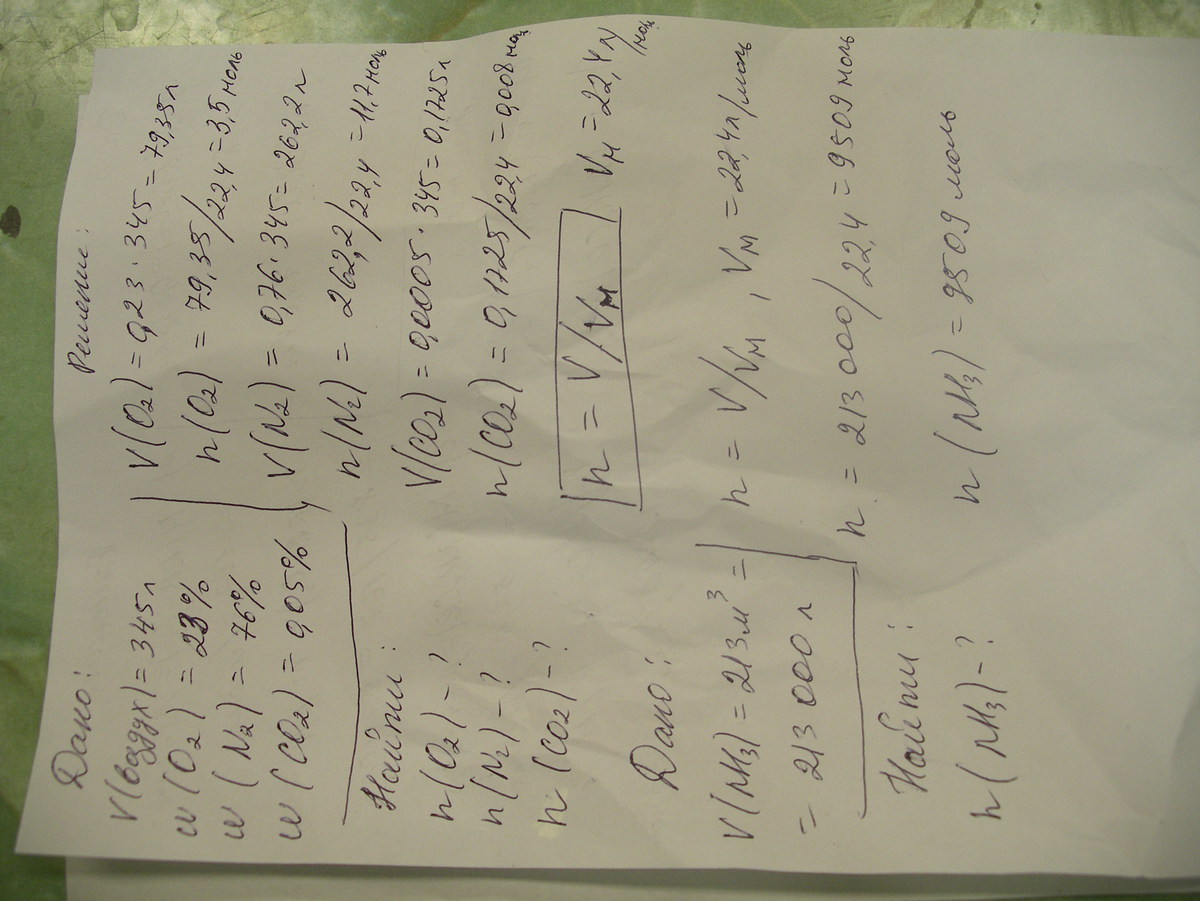 Дано:
V(воздух) = 345 л
ω(O₂) = 23%
ω(N₂) = 76%
ω(CO₂) = 0,05%
Найти:
n(O₂) - ?
n(N₂) - ?
n(CO₂) - ?
Решение:
V(O₂) = 0,23 · 345 = 79,35 л
n(O₂) = 79,35/22,4 = 3,5 моль
V(N₂) = 0,76 · 345 = 262,2 л
n(N₂) = 262,2/22,4 = 11,7 моль
V(CO₂) = 0,0005 · 345 = 0,1725 л
n(CO₂) = 0,1725/22,4 = 0,008 мол
n = V/Vм Vм = 22,4 л/мол
Дано:
V(NH₃) = 213 м³ =
= 213 000 л
Найти:
n(NH₃) - ?
n = V/Vм , Vм = 22,4 л/моль
n = 213 000/22,4 = 9509 моль
n(NH₃) = 9509 моль